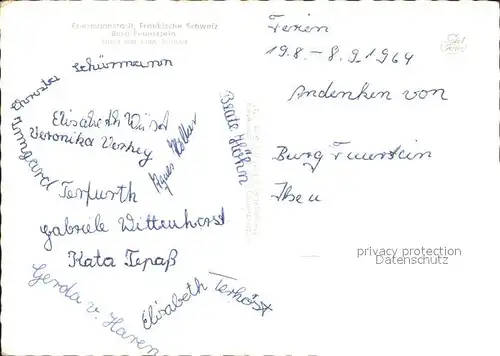 Ebermannstadt, Fränkische Schweiz
Burg Feuerstein
Ferien
19.8. – 8.9.1964
Andenken von
Burg Feuerstein
Schürmann
Irmgard
Elisabeth Wüst
Veronika Verhey
Agnes Heller
Beate Höhn
Terfurth
Gabriele Wittenhorst
Kata Tepaß
Gerda v. Haren
Elisabeth Terhorst
privacy protection
Datenschutz